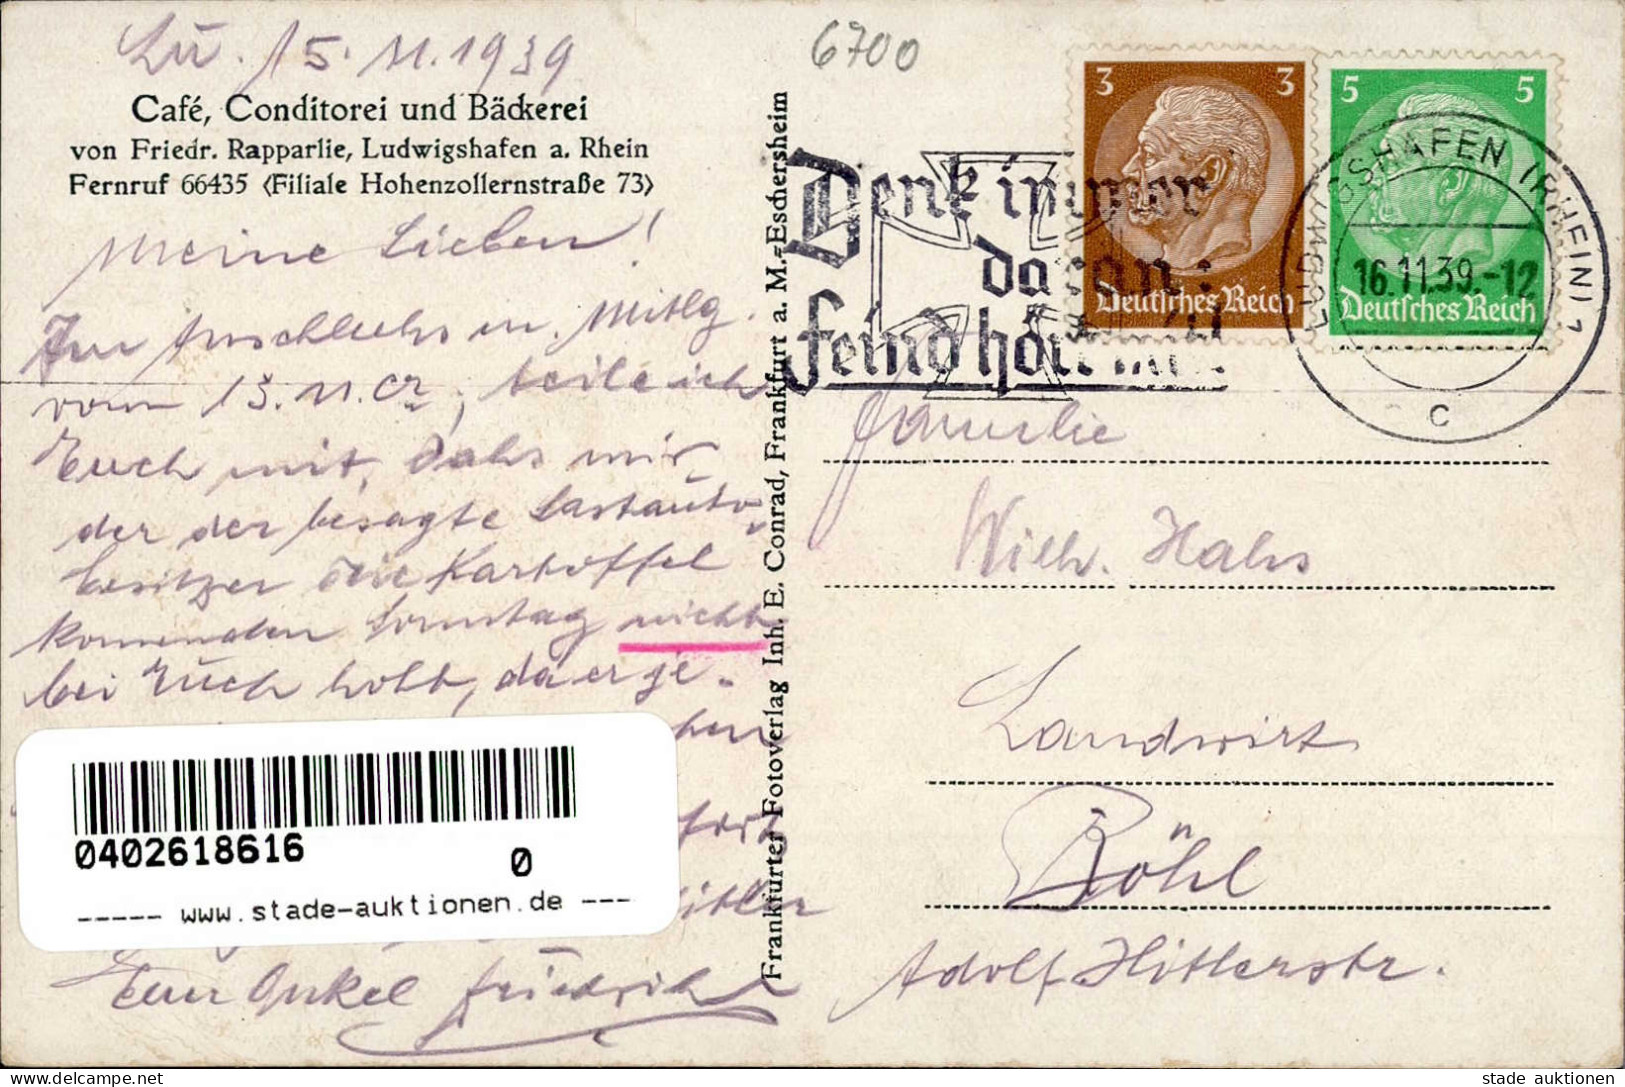 Lu. 15.11.1939
6700
Café, Conditorei und Bäckerei
von Friedr. Rapparlie, Ludwigshafen a. Rhein
Fernruf 66435 (Filiale Hohenzollernstraße 73)
Meine Lieben!
Im Anschluhs m. Mitlg.
vom 13.11. cr, teile ich
Euch mit, dahs mir
der der besagte Lastauto-
besitzer die Kartoffel
kommenden Sonntag nicht
bei Euch holt, da er je-
Euer Onkel Friedrich
Frankfurter Fotoverlag Inh. E. Conrad, Frankfurt a. M.-Eschersheim
3 3
Deutsches Reich
5 5
Deutsches Reich
Denk immer
daran:
Feind hört mit!
LUDWIGSHAFEN (RHEIN) 1
16.11.39.-12
c
Familie
Wilh. Hahs
Landwirt
Böhl
Adolf Hitlerstr.
0402618616
0
----- www.stade-auktionen.de ---
delcampe.net
stade auktionen